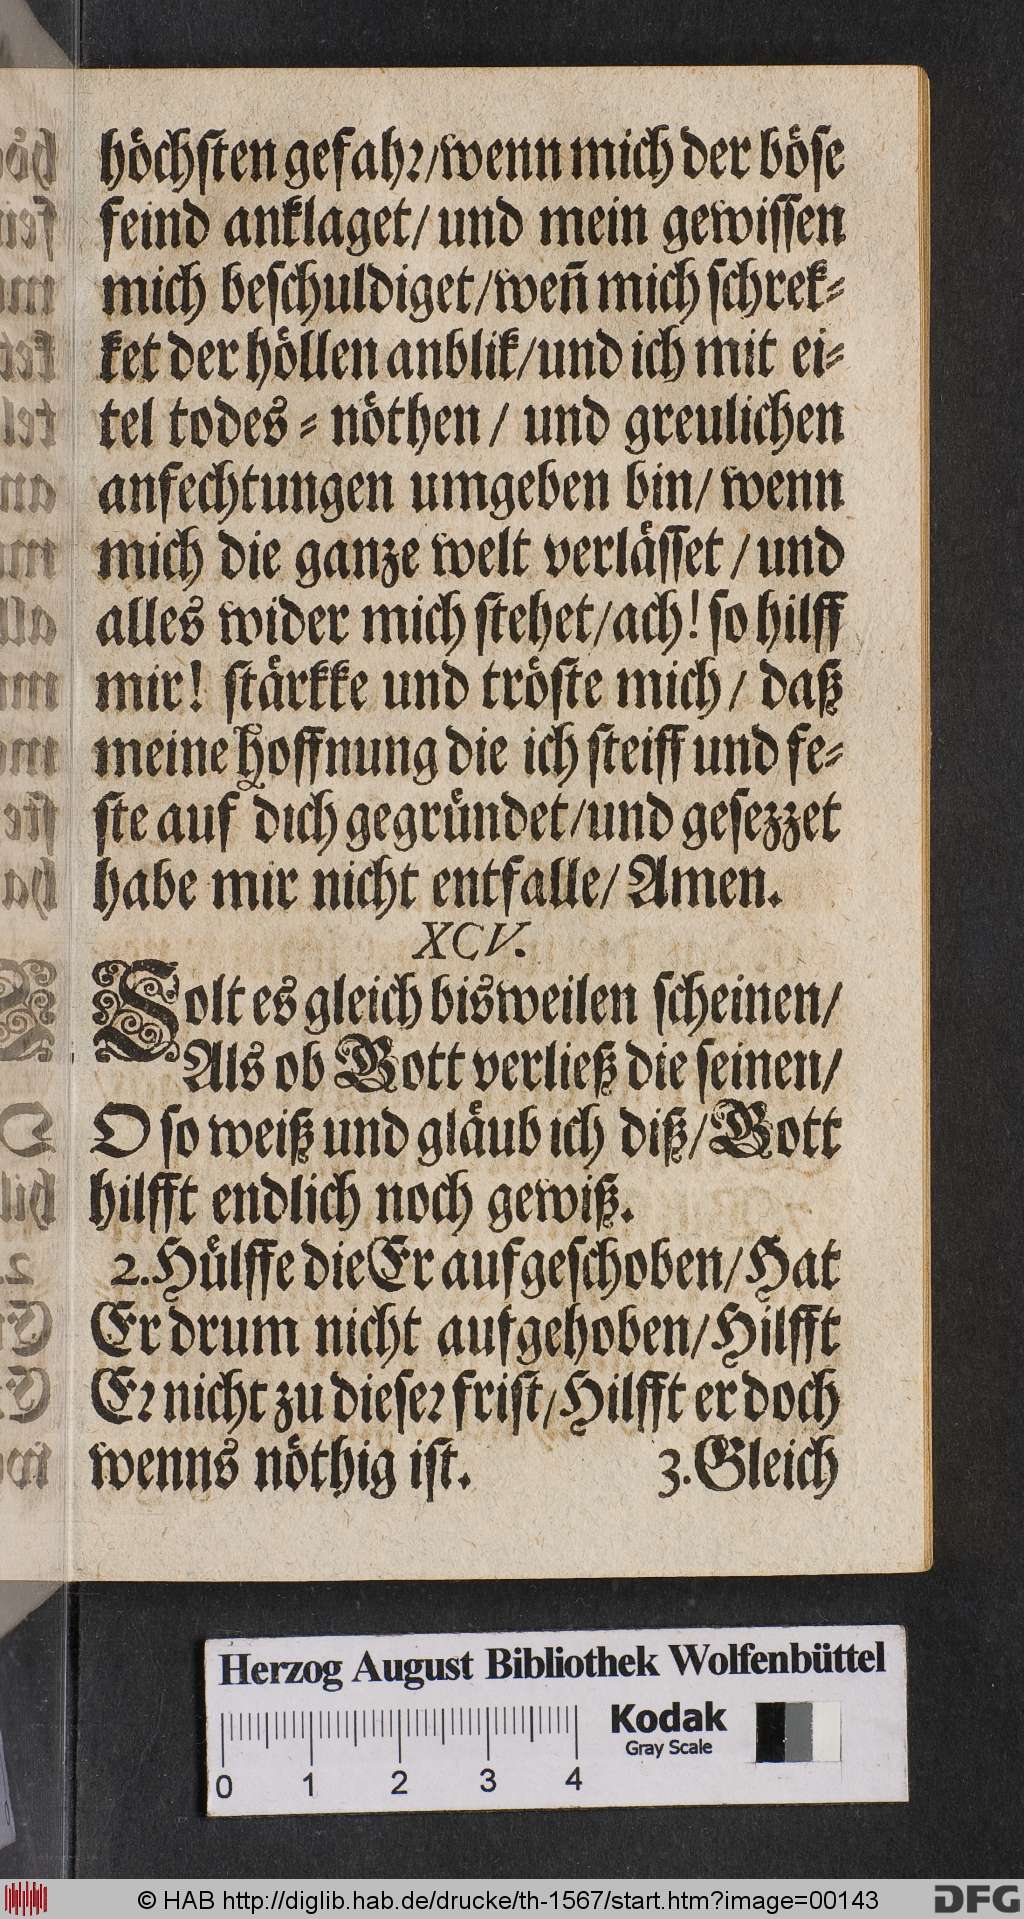 höchsten gefahr/wenn mich der böse
feind anklaget/ und mein gewissen
mich beschuldiget/weñ mich schrek-
ket der höllen anblik/und ich mit ei-
tel todes-nöthen/ und greulichen
anfechtungen umgeben bin/ wenn
mich die ganze welt verlässet/und
alles wider mich stehet/ach! so hilff
mir! stärkke und tröste mich/ daß
meine Hoffnung die ich steiff und fe-
ste auf dich gegründet/und gesezzet
habe mir nicht entfalle/ Amen.
XCV.
Solt es gleich bisweilen scheinen/
Als ob Gott verließ die seinen/
O so weiß und gläub ich diß/Gott
hilfft endlich noch gewiß.
2. Hülffe die Er aufgeschoben/Hat
Er drum nicht aufgehoben/Hilfft
Er nicht zu dieser frist/Hilfft er doch
wenns nöthig ist. 3. Gleich
Herzog August Bibliothek Wolfenbüttel
Kodak
Gray Scale
0 1 2 3 4
© HAB http://diglib.hab.de/drucke/th-1567/start.htm?image=00143
DFG